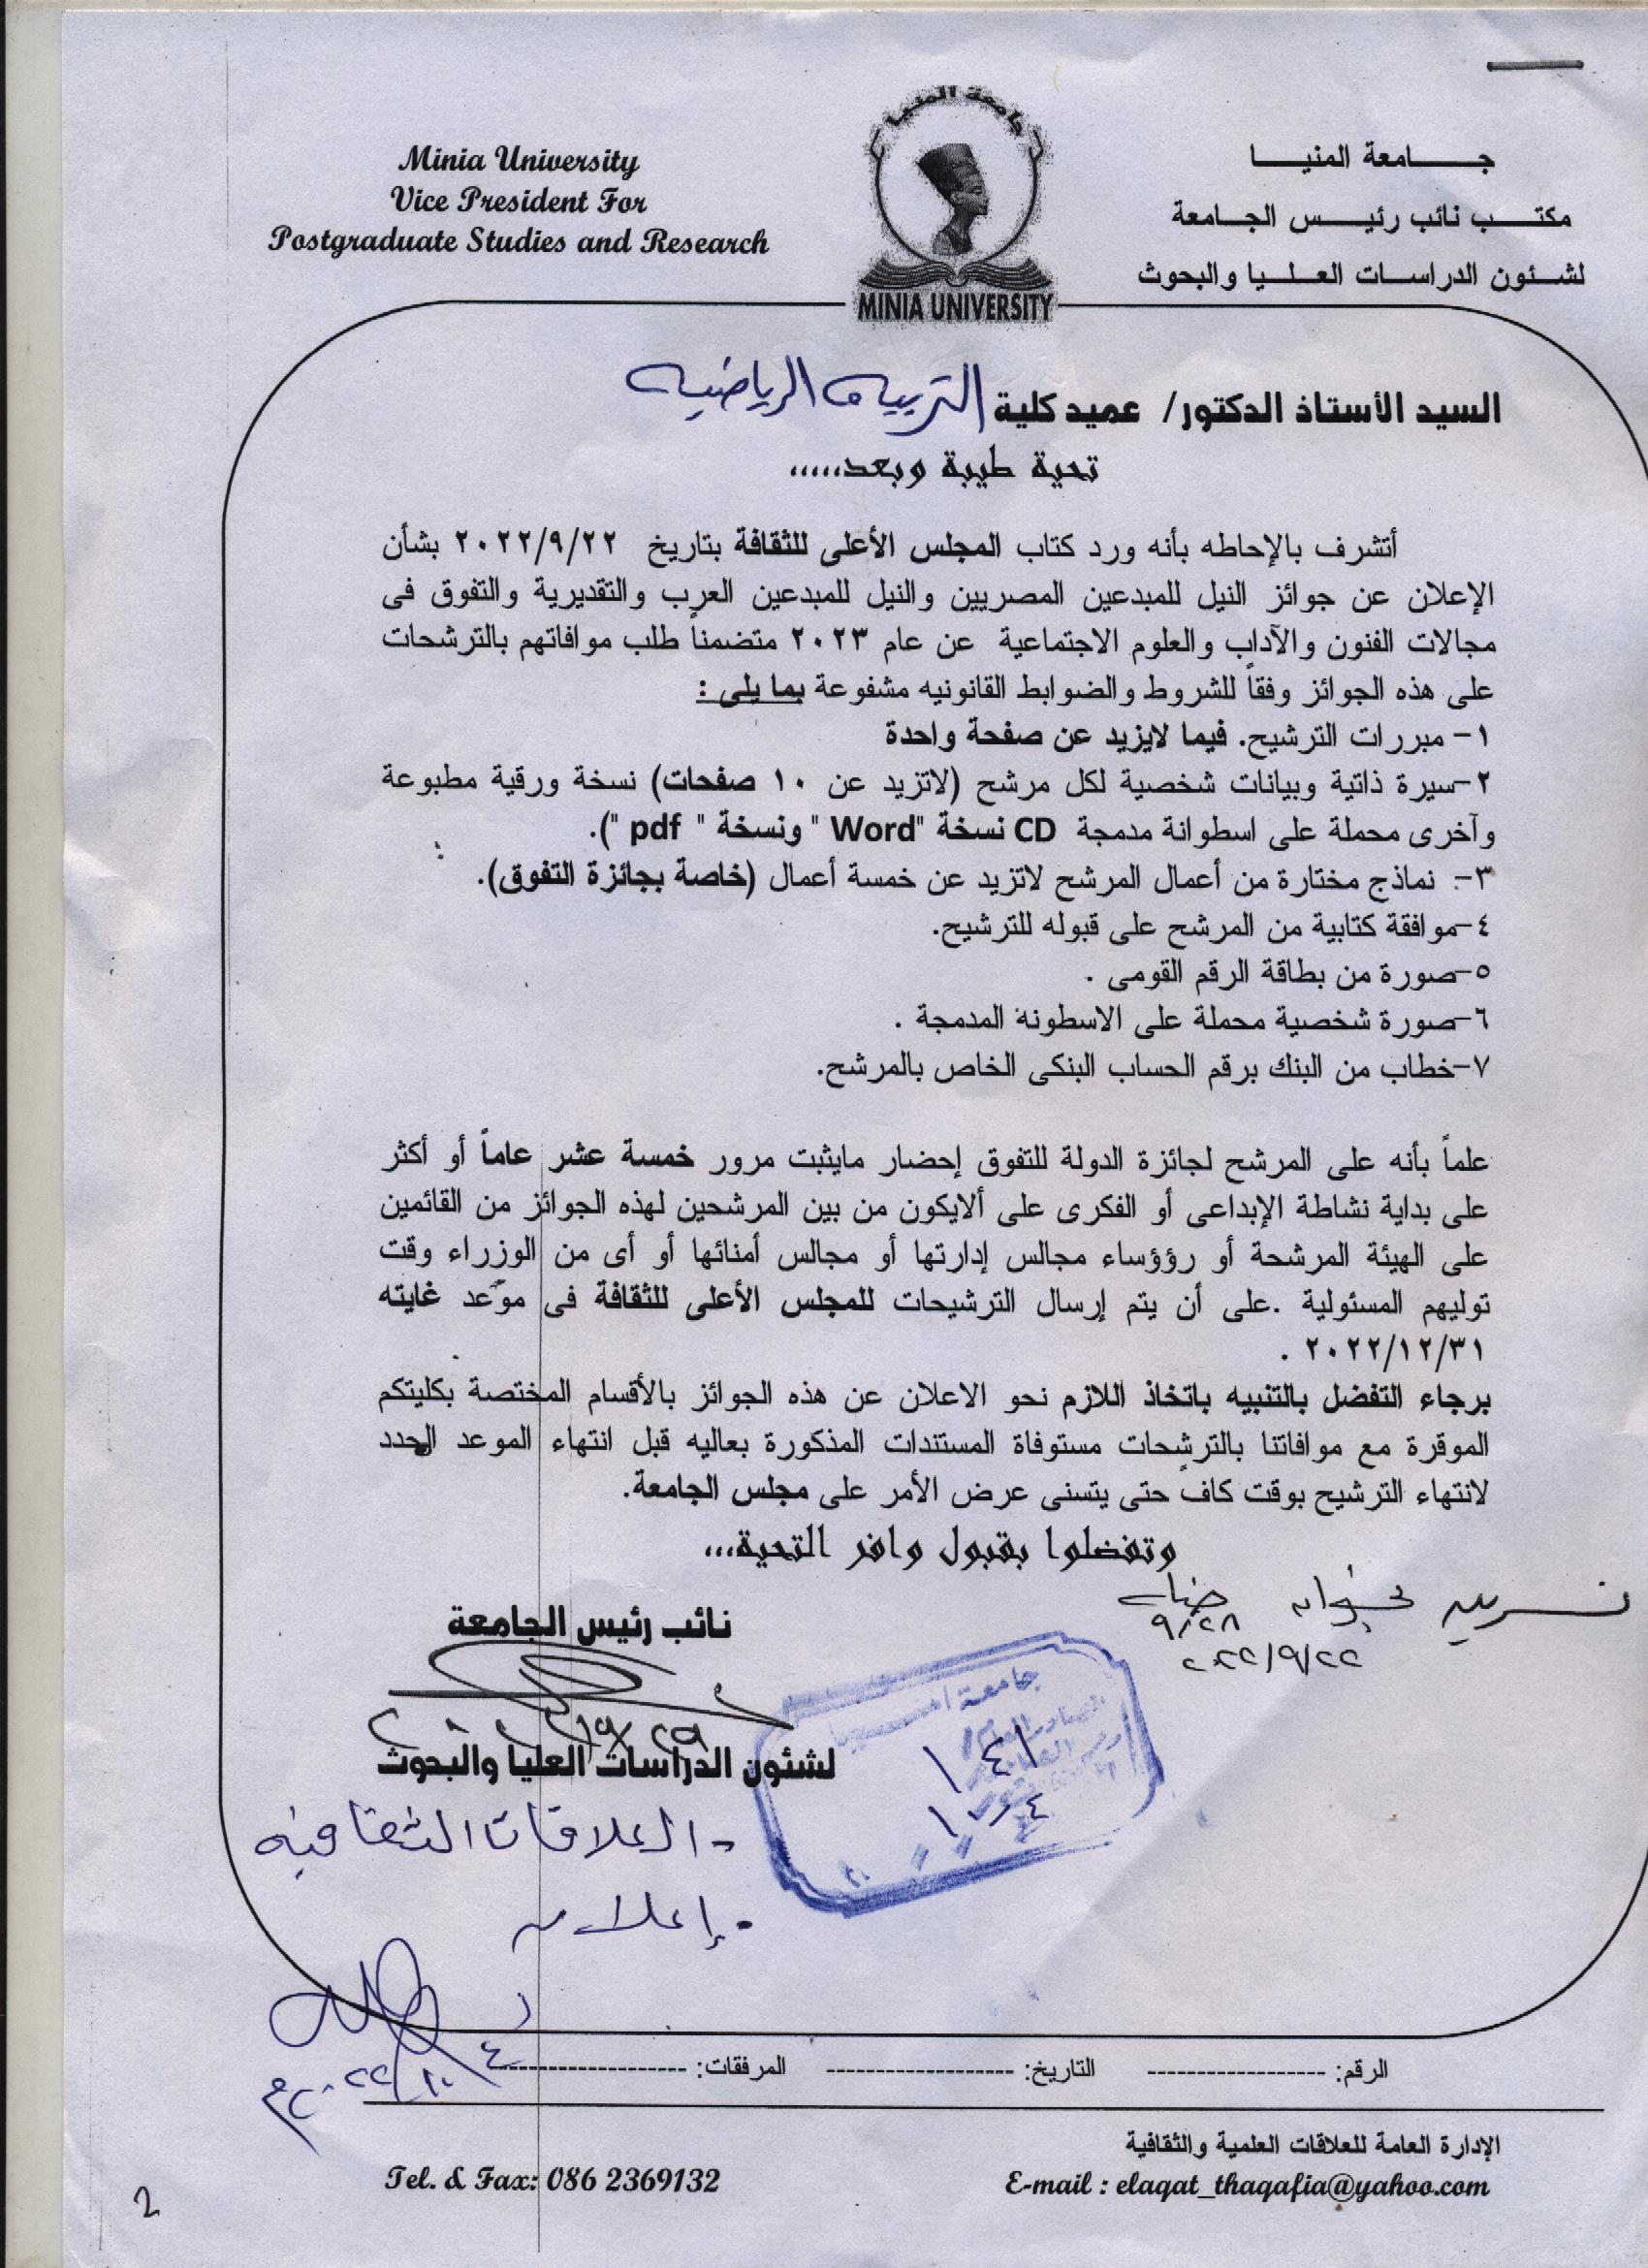 Minia University
Vice President For
Postgraduate Studies and Research
جامعة المنيا
MINIA UNIVERSITY
جـــــامعة المنيـــــا
مكتـــب نائب رئيـــس الجـامعة
لشـئون الدراسـات العـلـيا والبحوث
السيد الأستاذ الدكتور/ عميد كلية التربية الرياضية
تحية طيبة وبعد.....
أتشرف بالإحاطه بأنه ورد كتاب المجلس الأعلى للثقافة بتاريخ ٢٠٢٢/٩/٢٢ بشأن
الإعلان عن جوائز النيل للمبدعين المصريين والنيل للمبدعين العرب والتقديرية والتفوق فى
مجالات الفنون والآداب والعلوم الاجتماعية عن عام ٢٠٢٣ متضمناً طلب موافاتهم بالترشحات
على هذه الجوائز وفقاً للشروط والضوابط القانونيه مشفوعة بما يلى :
١- مبررات الترشيح. فيما لايزيد عن صفحة واحدة
٢-سيرة ذاتية وبيانات شخصية لكل مرشح (لاتزيد عن ١٠ صفحات) نسخة ورقية مطبوعة
وآخرى محملة على اسطوانة مدمجة CD نسخة "Word " ونسخة " pdf ").
٣- نماذج مختارة من أعمال المرشح لاتزيد عن خمسة أعمال (خاصة بجائزة التفوق).
٤-موافقة كتابية من المرشح على قبوله للترشيح.
٥-صورة من بطاقة الرقم القومى .
٦-صورة شخصية محملة على الاسطونه المدمجة .
٧-خطاب من البنك برقم الحساب البنكى الخاص بالمرشح.
علماً بأنه على المرشح لجائزة الدولة للتفوق إحضار مايثبت مرور خمسة عشر عاماً أو أكثر
على بداية نشاطة الإبداعى أو الفكرى على ألايكون من بين المرشحين لهذه الجوائز من القائمين
على الهيئة المرشحة أو رؤؤساء مجالس إدارتها أو مجالس أمنائها أو أى من الوزراء وقت
توليهم المسئولية .على أن يتم إرسال الترشيحات للمجلس الأعلى للثقافة فى موعد غايته
٢٠٢٢/١٢/٣١ .
برجاء التفضل بالتنبيه باتخاذ اللازم نحو الاعلان عن هذه الجوائز بالأقسام المختصة بكليتكم
الموقرة مع موافاتنا بالترشحات مستوفاة المستندات المذكورة بعاليه قبل انتهاء الموعد المحدد
لانتهاء الترشيح بوقت كاف حتى يتسنى عرض الأمر على مجلس الجامعة.
وتفضلوا بقبول وافر التحية...
نسرين
٩/٢٨
٢٠٢٢/٩/٢٢
نائب رئيس الجامعة
لشئون الدراسات العليا والبحوث
جامعة المنيا
١٤١
١٠/٤
- العلاقات الثقافية
- إعلان
٢٠٢٢/١٠/٤م
الرقم: ------------------ التاريخ: ------------------- المرفقات: -------------------
الإدارة العامة للعلاقات العلمية والثقافية
Tel. & Fax: 086 2369132
E-mail : elaqat_thaqafia@yahoo.com
2